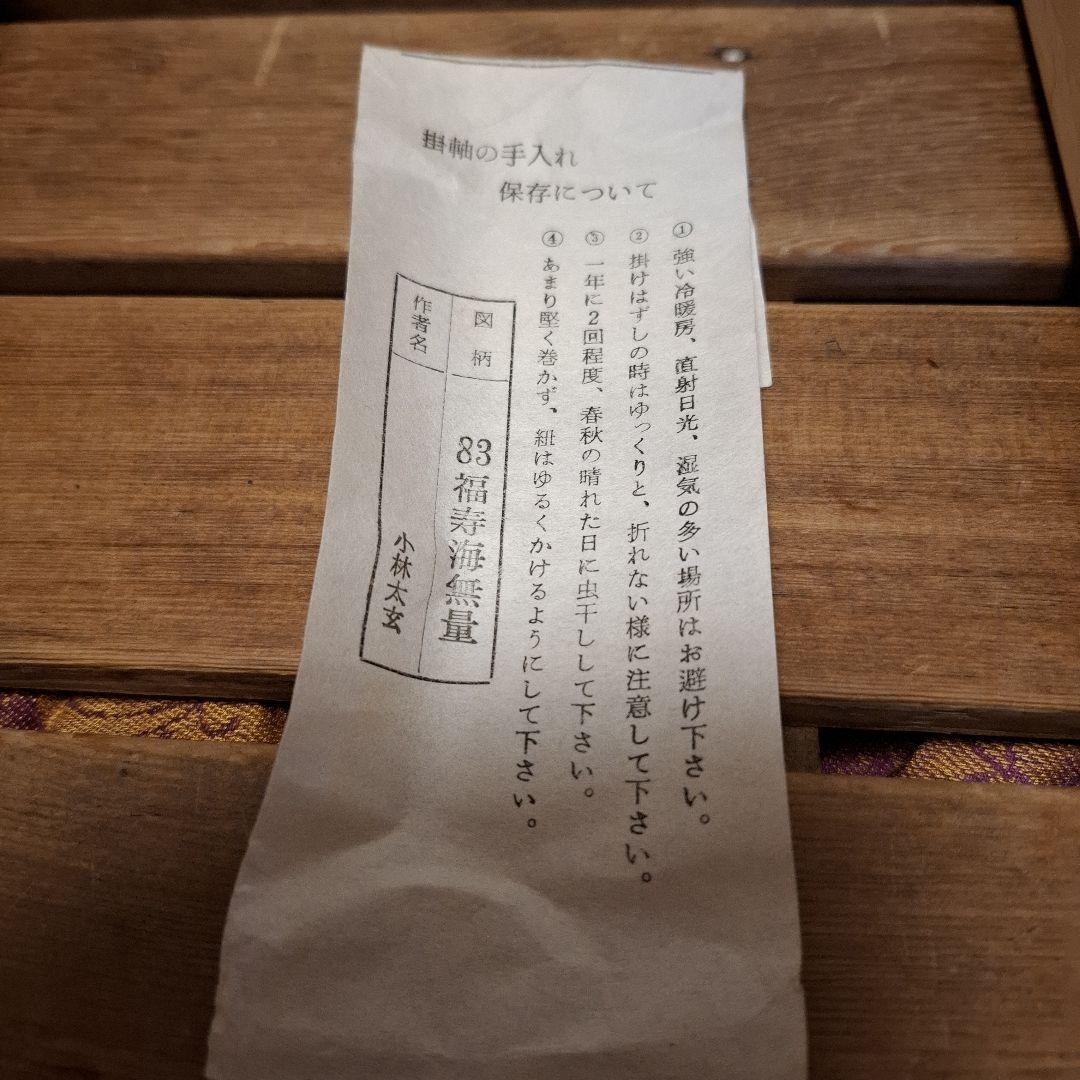 掛軸の手入れ
保存について
① 強い冷暖房、直射日光、湿気の多い場所はお避け下さい。
② 掛けはずしの時はゆっくりと、折れない様に注意して下さい。
③ 一年に2回程度、春秋の晴れた日に虫干しして下さい。
④ あまり堅く巻かず、紐はゆるくかけるようにして下さい。
図柄 83福寿海無量
作者名 小林太玄